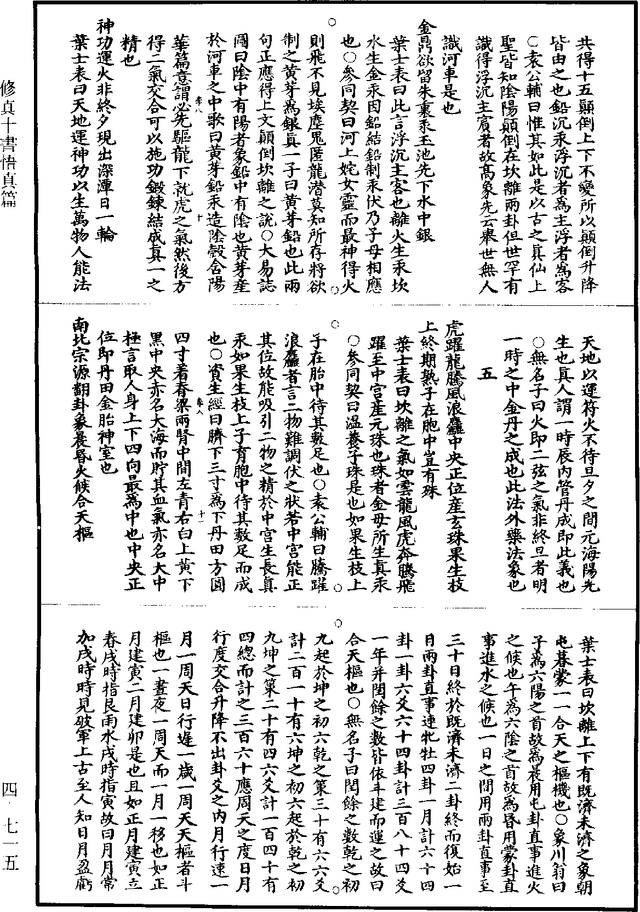 共得十五顛倒上下不變所以顛倒升降
皆由之也鉛沉汞浮沉者為主浮者為客
○袁公輔曰惟其如此是以古之真仙上
聖皆知陰陽顛倒在坎離兩卦但世罕有
識得浮沉主賓者故髙象先云舉世無人
識河車是也
金鼎欲留朱裏汞玉池先下水中銀
葉士表曰此言浮沉主客也離火生汞坎
水生金汞因鉛結鉛制汞伏乃子母相應
也○參同契曰河上姹女靈而最神得火
則飛不見埃塵鬼匿龍潜莫知所存將欲
制之黄芽為銀真一子曰黄芽鉛也此兩
句正應得上文顛倒坎離之說○大易誌
圖曰陰中有陽者象鉛中有陰也黄芽産
於河車之中歌曰黄芽鉛汞造陰殼含陽
華篇意謂必先驅龍下就虎之氣然後方
得二氣交合可以施功鍛鍊結成真一之
精也
神功運火非終夕現出深潭日一輪
葉士表曰天地運神功以生萬物人能法
天地以運符火不待旦夕之間元海陽先
生也真人謂一時辰內管丹成即此義也
○無名子曰火即二弦之氣非終旦者明
一時之中金丹之成也此法外藥法象也
五
虎躍龍騰風浪麤中央正位産玄珠果生枝
上終期熟子在胞中豈有殊
葉士表曰坎離之氣如雲龍風虎奔騰飛
躍至中宫産元珠也珠者金母所生真汞
○參同契曰温養子珠是也如果生枝上
子在胎中待其數足也○袁公輔曰騰躍
浪麤者言二物難調伏之狀若中宫能正
其位故能吸引二物之精於中宫生長真
汞如果生枝上子育胞中待其數足而成
也○資生經曰臍下三寸為下丹田方圓
四寸着脊梁兩腎中間左青右白上黄下
黑中央赤名大海而貯其血氣亦名大中
極言取人身上下四向最為中也中央正
位即丹田金胎神室也
南北宗源翻卦象晨昏火候合天樞
葉士表曰坎離上下有既濟未濟之象朝
屯暮蒙一一合天之樞機也○象川翁曰
子為六陽之首故為晨用屯卦直事進火
之候也午為六陰之首故為昏用蒙卦直
事進水之候也一日之間用兩卦直事至
三十日終於既濟未濟二卦終而復始一
日兩卦直事連牝牡四卦一月計六十四
卦一卦六爻六十四卦計三百八十四爻
一年并閏餘之數皆依斗建而運之故曰
合天樞也○無名子曰閏餘之數乾之初
九起於坤之初六乾之策三十有六六爻
計二百一十有六坤之初六起於乾之初
九坤之策二十有四六爻計一百四十有
四總而計之三百六十應周天之度日月
行度交合升降不出卦爻之內月行速一
月一周天日行遲一歲一周天天樞者斗
樞也一晝夜一周天而一月一移也如正
月建寅二月建卯是也且如正月建寅立
春戌時指艮雨水戌時指寅故曰月月常
加戌時時見破軍上古至人知日月盈虧
修真十書悟真篇
四·七一五